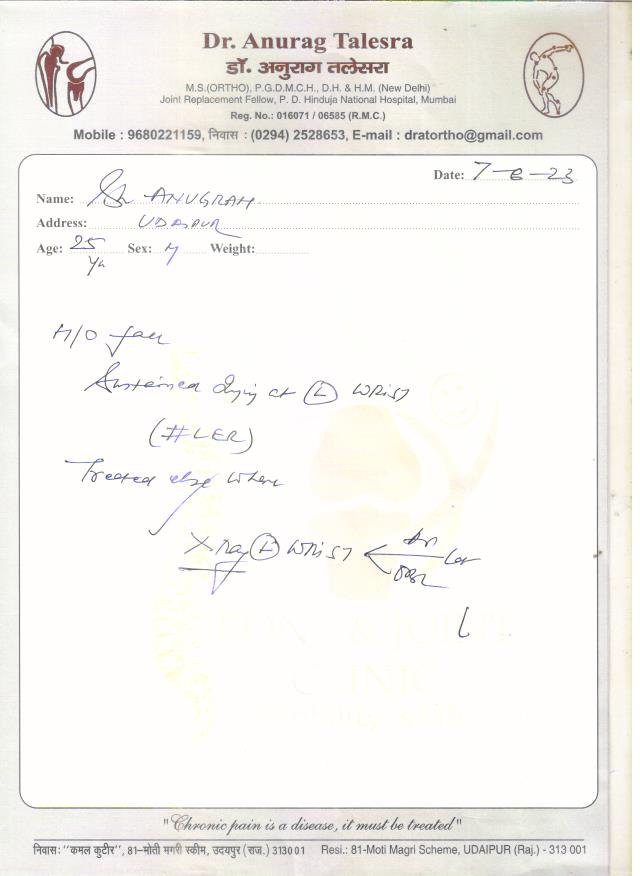 Dr. Anurag Talesra
डॉ. अनुराग तलेसरा
M.S.(ORTHO), P.G.D.M.C.H., D.H. & H.M. (New Delhi)
Joint Replacement Fellow, P. D. Hinduja National Hospital, Mumbai
Reg. No.: 016071 / 06585 (R.M.C.)
Mobile : 9680221159, निवास : (0294) 2528653, E-mail : dratortho@gmail.com
Date: 7-6-23
Name: Sh ANUGRAH
Address: UDAIPUR
Age: 25 Yr Sex: M Weight:
H/O fall
Sustained Injury at (L) WRIST
(#LER)
Treated else where
X Ray (L) WRIST AP Lat OBL
BONE & JOINT
CLINIC
"Chronic pain is a disease, it must be treated"
निवास: "कमल कुटीर", 81-मोती मगरी स्कीम, उदयपुर (राज.) 313001 Resi.: 81-Moti Magri Scheme, UDAIPUR (Raj.) - 313 001